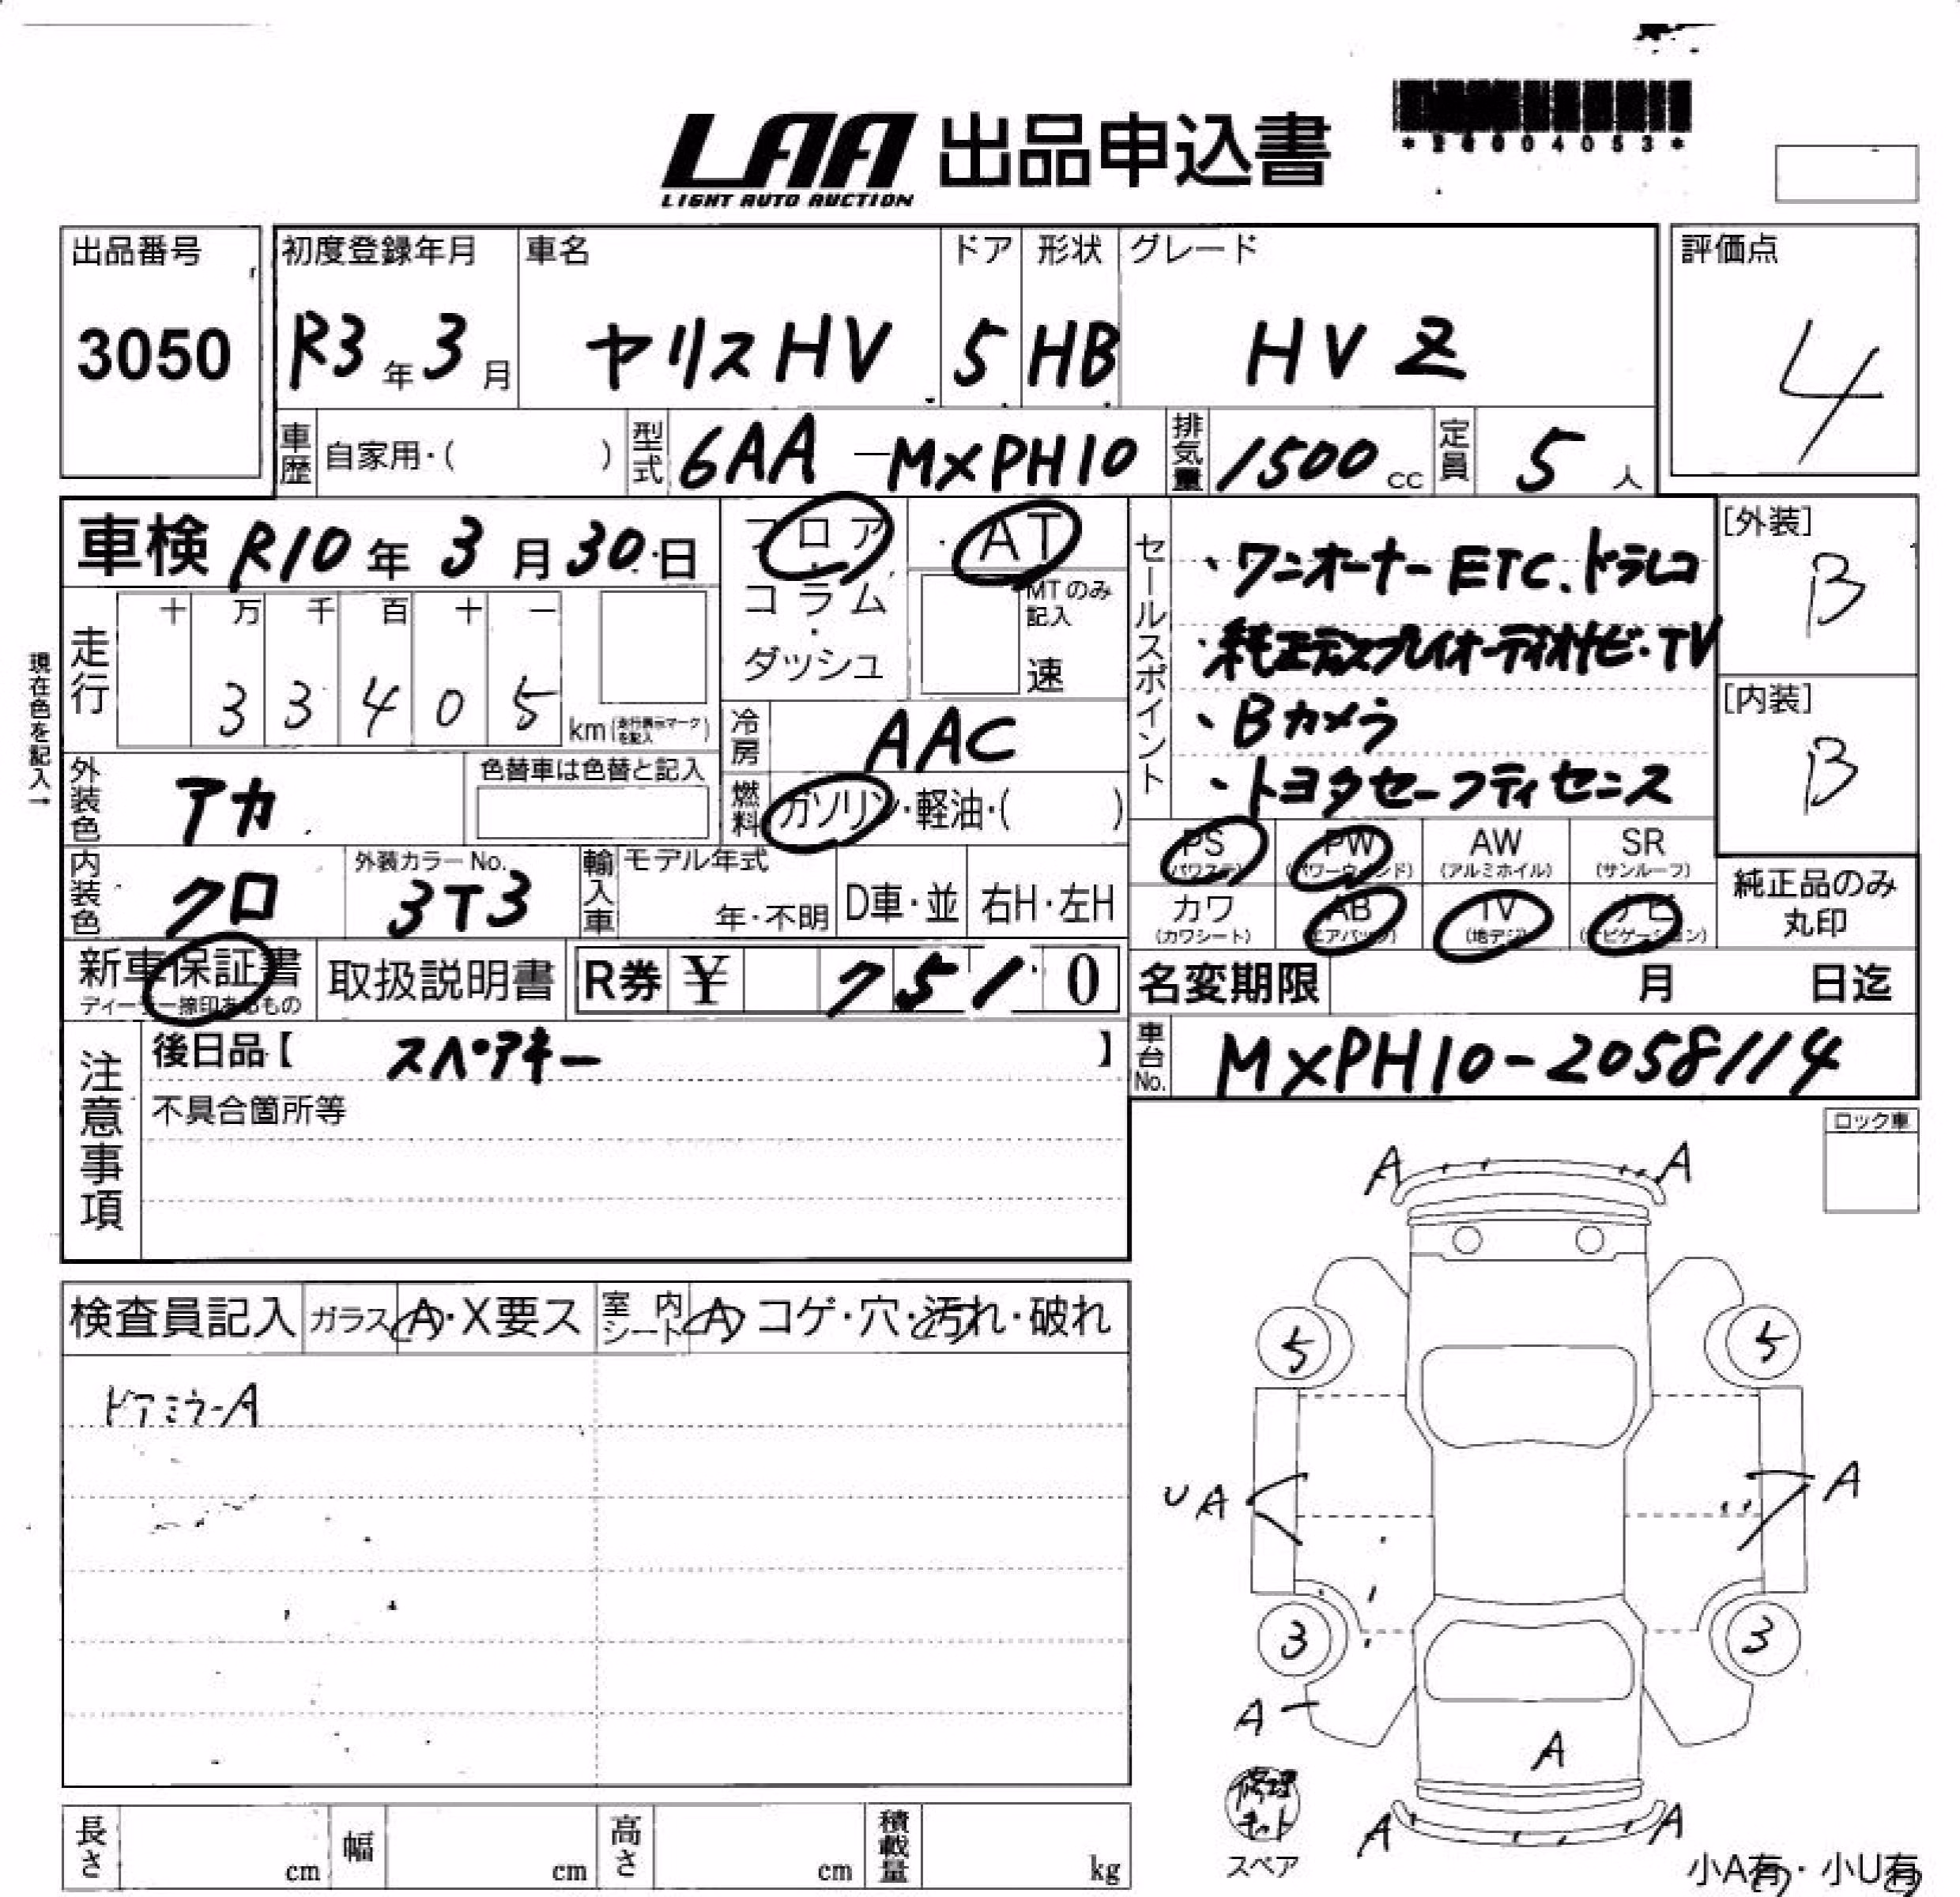 LAA 出品申込書
LIGHT AUTO AUCTION
*26004053*
出品番号
3050
初度登録年月
R3年3月
車名
ヤリスHV
ドア
5
形状
HB
グレード
HV Z
評価点
4
車歴 自家用・( )
型式 6AA-MXPH10
排気量 1500 cc
定員 5 人
車検 R10年3月30日
フロア・コラム・ダッシュ
AT
MTのみ記入
速
現在色を記入→
走行 十 万 千 百 十 一
3 3 4 0 5 km (走行表示マークを記入)
冷房 AAC
外装色 アカ
色替車は色替と記入
燃料 ガソリン・軽油・( )
内装色 クロ
外装カラーNo.
3T3
輸入車 モデル年式
年・不明
D車・並
右H・左H
セールスポイント
・ワンオーナー ETC.ドラレコ
・純正ディスプレイオーディオナビ・TV
・Bカメラ
・トヨタセーフティセンス
[外装]
B
[内装]
B
PS (パワステ)
PW (パワーウィンド)
AW (アルミホイル)
SR (サンルーフ)
カワ (カワシート)
AB (エアバック)
TV (地デジ)
ナビ (ナビゲーション)
純正品のみ丸印
新車保証書
ディーラー捺印あるもの
取扱説明書
R券 ¥ 7 5 1 0
名変期限 月 日迄
車台No. MXPH10-2058114
注意事項
後日品【 スペアキー 】
不具合箇所等
ロック車
検査員記入
ガラス A・X要ス
室内シート A コゲ・穴・汚れ・破れ
ドアミラーA
A A
5 5
UA A
3 3
A
A
A A
修理キット
スペア
小A有・小U有
長さ cm
幅 cm
高さ cm
積載量 kg